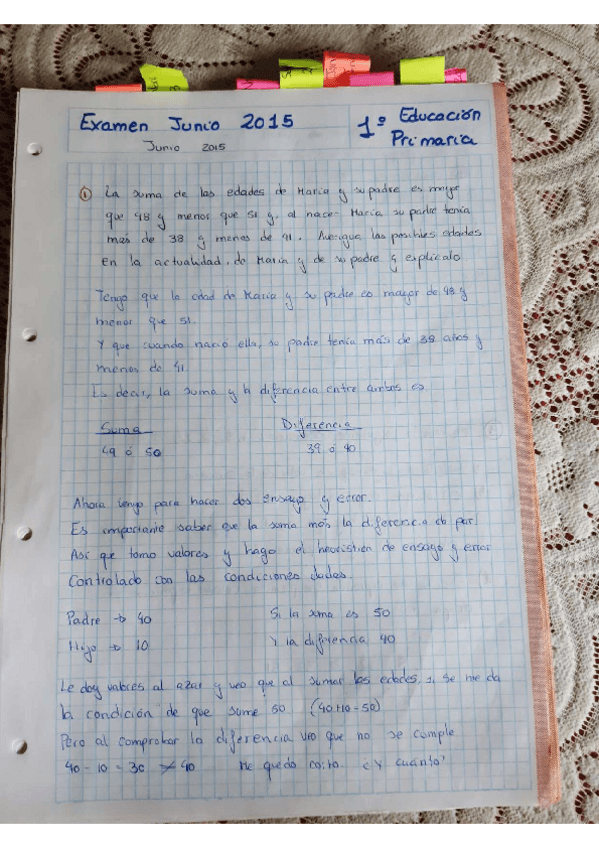 Examen Junio 2015
1º Educación
Primaria
Junio 2015
① La suma de las edades de María y su padre es mayor
que 48 y menor que 51 y, al nacer María su padre tenía
más de 38 y menos de 41. Averigua las posibles edades
en la actualidad, de María y de su padre y explícalo
Tengo que la edad de María y su padre es mayor de 48 y
menor que 51.
Y que cuando nació ella, su padre tenía más de 38 años y
menos de 41
Es decir, la suma y la diferencia entre ambos es
Suma
Diferencia
49 ó 50
39 ó 40
Ahora tengo para hacer dos ensayo y error.
Es importante saber que la suma más la diferencia es par.
Así que tomo valores y hago el heurístico de ensayo y error
controlado con las condiciones dadas.
Padre → 40
Si la suma es 50
Hijo → 10
Y la diferencia 40
Le doy valores al azar y veo que al sumar las edades, si se me da
la condición de que sume 50 (40+10=50)
Pero al comprobar la diferencia veo que no se cumple
40 - 10 = 30 ≠ 40 Me quedo corto. ¿Y cuánto?